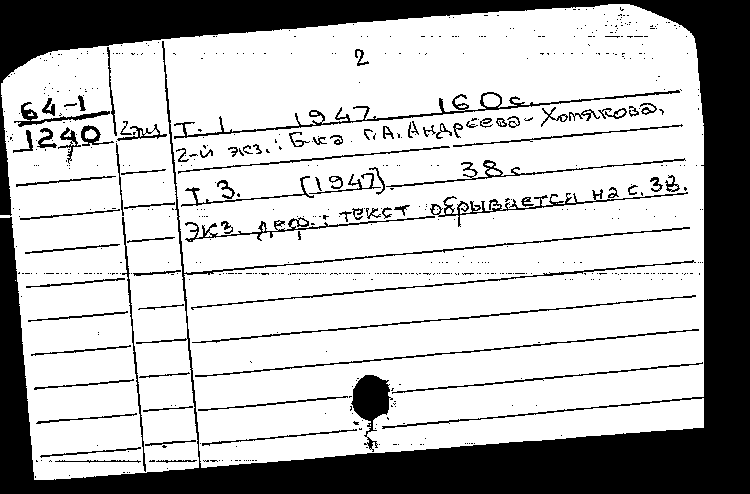 2
64-1
1240
2 экз
Т. 1. 1947. 160 с.
2-й экз.: Б-ка Г.А. Андреева-Хомякова.
Т. 3. [1947]. 38 с.
Экз. деф.: текст обрывается на с. 38.